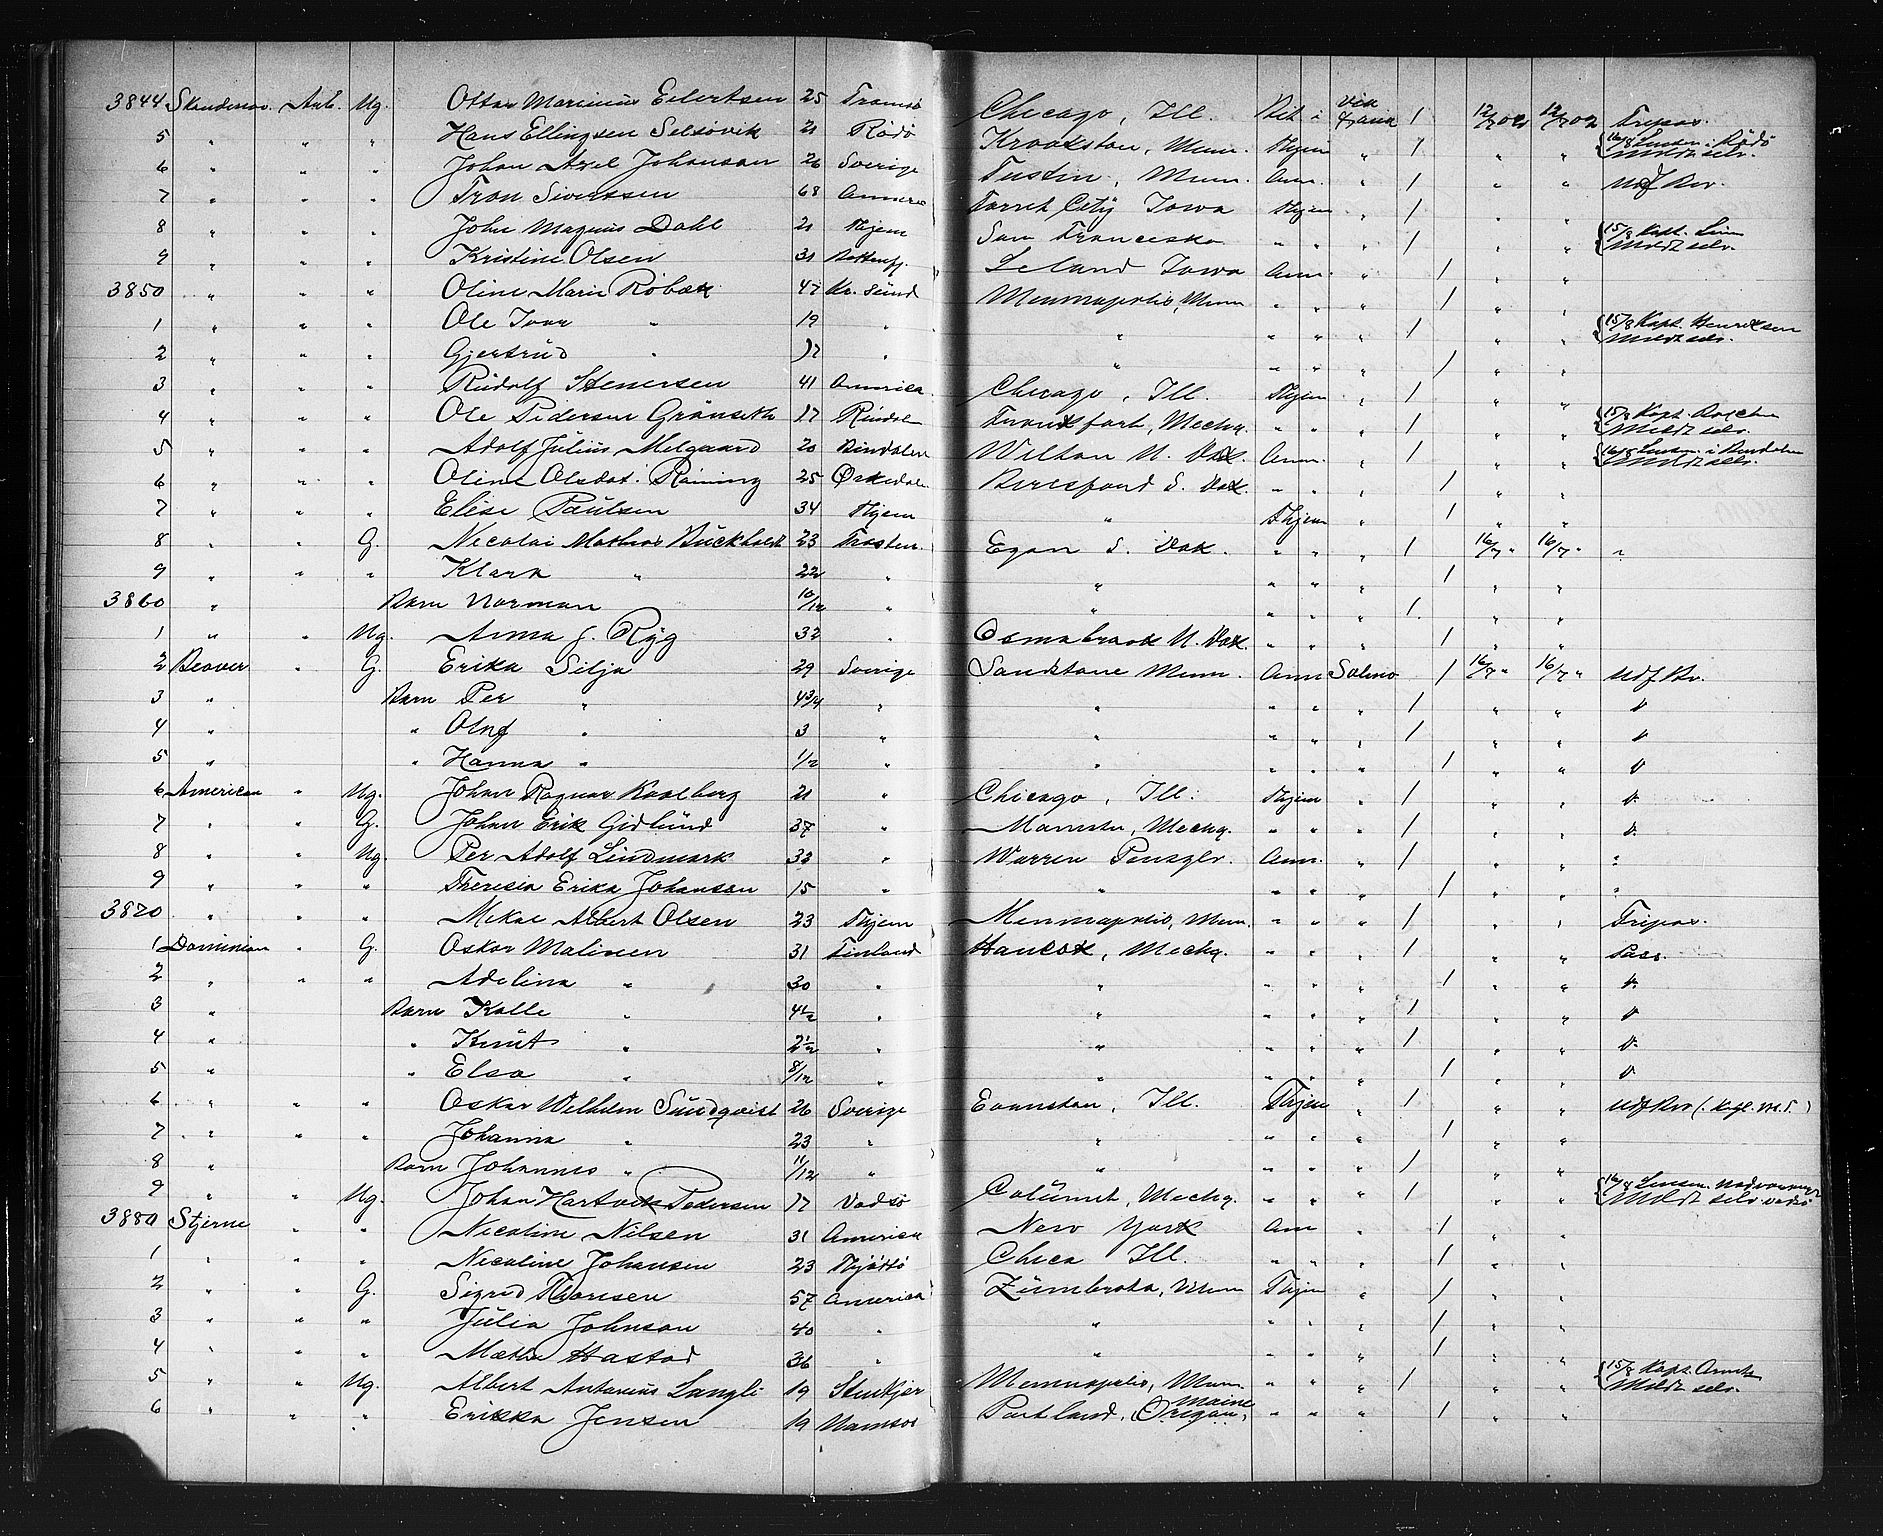 3844 Skandinav. Arb. Ug. Ottar Marinius Eilertsen 25 Tromsö Chicago, Ill. Bil. i 1 12/7 02 12/7 02 Fripas.
5 " " " Hans Ellingsen Selsövik 21 Rödö Krookston, Minn. Thjem " 1 " " {16/8 Lensm. i Rödö Meldt selv.
6 " " " Johan Axel Johanson 26 Sverige Tustin, Minn. Am. " 1 " " Udf Bev.
7 " " " Tron Sivertsen 68 America Forest City Iowa Thjem " 1 " "
8 " " " John Magnus Dahl 21 Thjem San Francisko " " " 1 " " {15/8 Kapt. Meldt selv.
9 " " " Kristine Olsen 31 Leland Iowa Am. " 1 " "
3850 " " " Oline Marie Robæk 47 Kr. Sund Minniapolis, Minn " " " 1 " "
1 " " " Ole Ivar " 19 " " " " " 1 " " {15/8 Kapt. Henriksen Meldt selv.
2 " " " Gjertrud " 17 " " " " " 1 " "
3 " " " Rudolf Stenersen 41 America Chicago, Ill. Thjem " 1 " "
4 " " " Ole Pedersen Grönseth 17 Rindal Frankfort, Michg. " " " 1 " " {15/8 Kapt. Meldt selv.
5 " " " Adolf Julius Melgaard 20 Bindalen Wilton N. Dak. Am. " 1 " " {16/8 Lensm. i Bindalen Meldt selv.
6 " " " Oline Olsdat. Röning 25 Örkedal Beresford S. Dak. " " " 1 " "
7 " " " Elise Paulsen 34 Thjem " Thjem " 1 " "
8 " " G. Nicolai Mathias Buckholdt 23 Trosten. Egan S. Dak. " " " 1 16/7 " 16/7 " "
9 " " " Klara " 22 " " " " " 1 " "
3860 " Barn Norman 10/12 " " " " " 1 " "
1 " " Ug. Anna J. Ryg 32 " Osmabrook N. Dak. " " " 1 " "
2 Beaver " G. Erika Silja 29 Sverige Sandstone Minn. Am Salmo 1 16/7 " 16/7 " Udf Bv.
3 " Barn Per " 4 3/4 " " " " " 1 " " D
4 " " Oluf " 3 " " " " " 1 " " D
5 " " Hanna " 1/2 " " " " " 1 " " D
6 American " Ug. Johan Ragnar Kaalberg 21 " Chicago, Ill. Thjem " 1 " " D.
7 " " G. Johan Erik Gidlund 37 " Manistee, Michg. " " " 1 " " D.
8 " " Ug. Per Adolf Lindmark 33 " Warren Pensylv. Am. " 1 " " "
9 " " " Theresia Erika Johanson 15 " " " " " 1 " " "
3870 " " " Mikal Albert Olsen 23 Thjem Minniapolis, Minn. " " " 1 " " Fripas.
1 Dominion " G. Oskar Malinen 31 Finland Hancok, Michg. " " " 1 " " Pass.
2 " " " Adelina " 30 " " " " " 1 " " D.
3 " Barn Kalle " 4 1/2 " " " " " 1 " " D
4 " " Knut " 2 1/2 " " " " " 1 " " D.
5 " " Elsa " 8/12 " " " " " 1 " " D
6 " " " Oskar Wilhelm Sundqvist 26 Sverige Evanston, Ill. Thjem " 1 " " Udf Bev (. Kgl. M. S.)
7 " " " Johanna " 23 " " " " " 1 " "
8 " Barn Johannes " 11/12 " " " " " 1 " "
9 " " Ug. Johan Hartvik Pedersen 17 Vadsö Calumet, Michg. " " " 1 " " {16/8 Lensm. Meldt selv Vadsö
3880 Stjerne " " Nicoline Nilsen 31 America New York Am " 1 " "
1 " " " Nicoline Johansen 23 Thjötö Chica Ill. " " " 1 " "
2 " " G. Sigrid Thorsen 57 America Zumbrota, Minn Thjem " 1 " "
3 " " " Julia Johnson 40 " " " " " 1 " "
4 " " " Mathie Hastad 36 " " " " " 1 " "
5 " " Ug. Albert Antonius Langli 19 Stenkjer Minniapolis, Minn. " " " 1 " " {15/8 Kapt. Meldt selv.
6 " " " Erikka Jensen 19 Namsos Portland, (Oregon, Maine " " " 1 " "